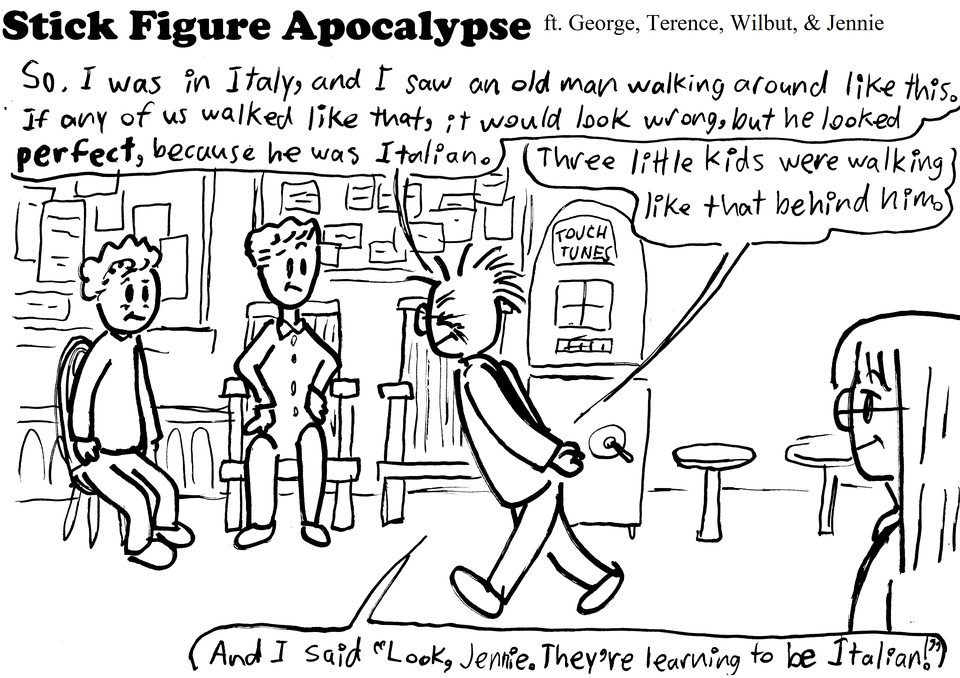 Stick Figure Apocalypse ft. George, Terence, Wilbut, & Jennie
So, I was in Italy, and I saw an old man walking around like this.
If any of us walked like that, it would look wrong, but he looked
perfect, because he was Italian.
Three little kids were walking
like that behind him.
TOUCH
TUNES
And I said "Look, Jennie. They're learning to be Italian!"